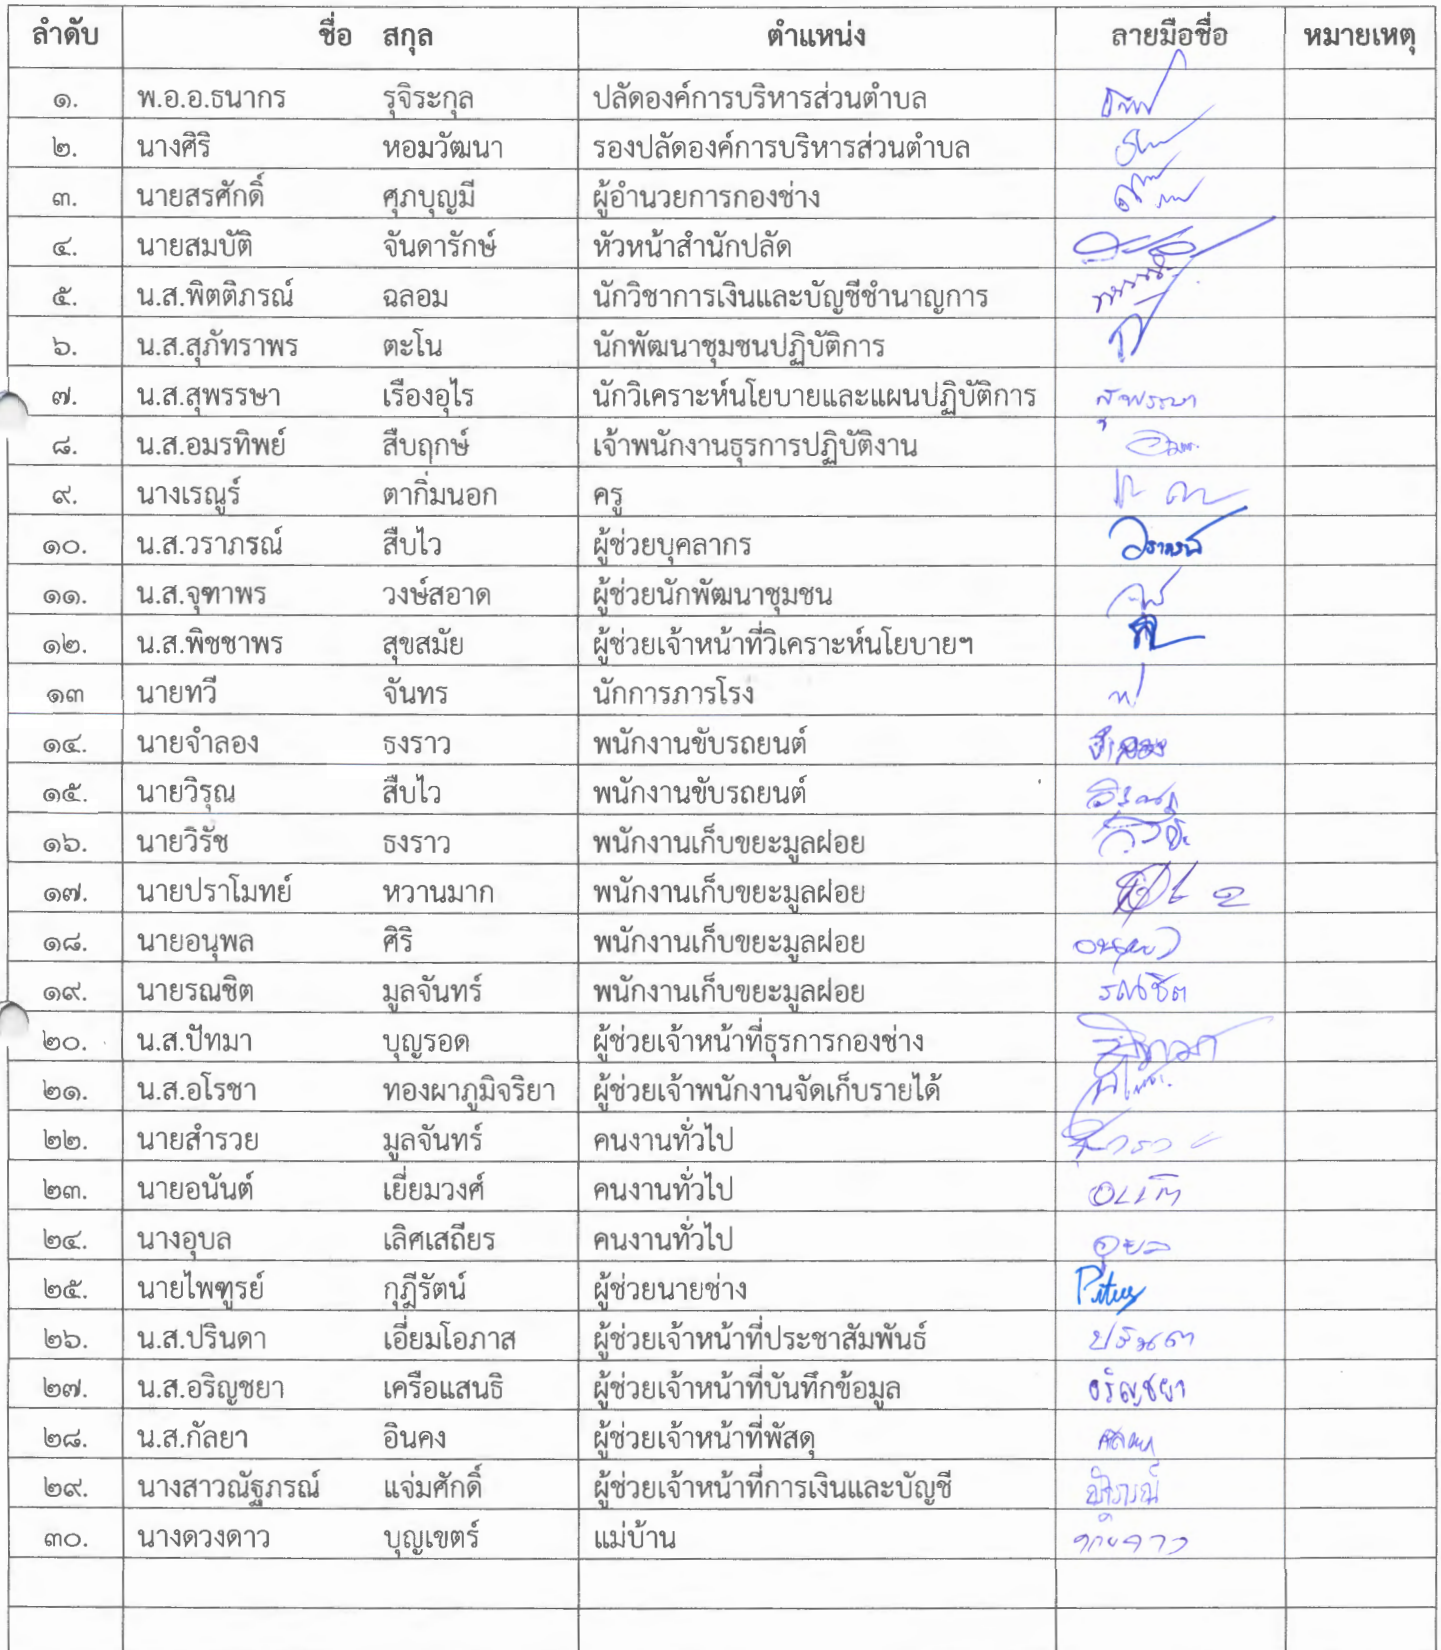 ลำดับ ชื่อ สกุล ตำแหน่ง ลายมือชื่อ หมายเหตุ
๑. พ.อ.อ.ธนากร รุจิระกุล ปลัดองค์การบริหารส่วนตำบล
๒. นางศิริ หอมวัฒนา รองปลัดองค์การบริหารส่วนตำบล
๓. นายสรศักดิ์ ศุภบุญมี ผู้อำนวยการกองช่าง
๔. นายสมบัติ จันดารักษ์ หัวหน้าสำนักปลัด
๕. น.ส.พิตติภรณ์ ฉลอม นักวิชาการเงินและบัญชีชำนาญการ
๖. น.ส.สุภัทราพร ตะโน นักพัฒนาชุมชนปฏิบัติการ
๗. น.ส.สุพรรษา เรืองอุไร นักวิเคราะห์นโยบายและแผนปฏิบัติการ สุพรรษา
๘. น.ส.อมรทิพย์ สืบฤกษ์ เจ้าพนักงานธุรการปฏิบัติงาน
๙. นางเรณูร์ ตากิ่มนอก ครู
๑๐. น.ส.วราภรณ์ สืบไว ผู้ช่วยบุคลากร วราภรณ์
๑๑. น.ส.จุฑาพร วงษ์สอาด ผู้ช่วยนักพัฒนาชุมชน
๑๒. น.ส.พิชชาพร สุขสมัย ผู้ช่วยเจ้าหน้าที่วิเคราะห์นโยบายฯ
๑๓ นายทวี จันทร นักการภารโรง
๑๔. นายจำลอง ธงราว พนักงานขับรถยนต์ จำลอง
๑๕. นายวิรุณ สืบไว พนักงานขับรถยนต์
๑๖. นายวิรัช ธงราว พนักงานเก็บขยะมูลฝอย
๑๗. นายปราโมทย์ หวานมาก พนักงานเก็บขยะมูลฝอย
๑๘. นายอนุพล ศิริ พนักงานเก็บขยะมูลฝอย
๑๙. นายรณชิต มูลจันทร์ พนักงานเก็บขยะมูลฝอย รณชิต
๒๐. น.ส.ปัทมา บุญรอด ผู้ช่วยเจ้าหน้าที่ธุรการกองช่าง
๒๑. น.ส.อโรชา ทองผาภูมิจริยา ผู้ช่วยเจ้าพนักงานจัดเก็บรายได้
๒๒. นายสำรวย มูลจันทร์ คนงานทั่วไป
๒๓. นายอนันต์ เยี่ยมวงศ์ คนงานทั่วไป
๒๔. นางอุบล เลิศเสถียร คนงานทั่วไป อุบล
๒๕. นายไพฑูรย์ กุฎีรัตน์ ผู้ช่วยนายช่าง
๒๖. น.ส.ปรินดา เอี่ยมโอภาส ผู้ช่วยเจ้าหน้าที่ประชาสัมพันธ์ ปรินดา
๒๗. น.ส.อริญชยา เครือแสนธิ ผู้ช่วยเจ้าหน้าที่บันทึกข้อมูล อริญชยา
๒๘. น.ส.กัลยา อินคง ผู้ช่วยเจ้าหน้าที่พัสดุ กัลยา
๒๙. นางสาวณัฐภรณ์ แจ่มศักดิ์ ผู้ช่วยเจ้าหน้าที่การเงินและบัญชี ณัฐภรณ์
๓๐. นางดวงดาว บุญเขตร์ แม่บ้าน ดวงดาว